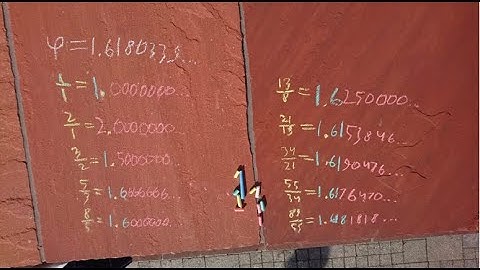 φ=1.6180333...
1/1=1.0000000...
2/1=2.0000000...
3/2=1.5000000...
5/3=1.6666666...
8/5=1.6000000...
13/8=1.6250000...
21/13=1.6153846...
34/21=1.6190476...
55/34=1.6176470...
89/55=1.6181818...